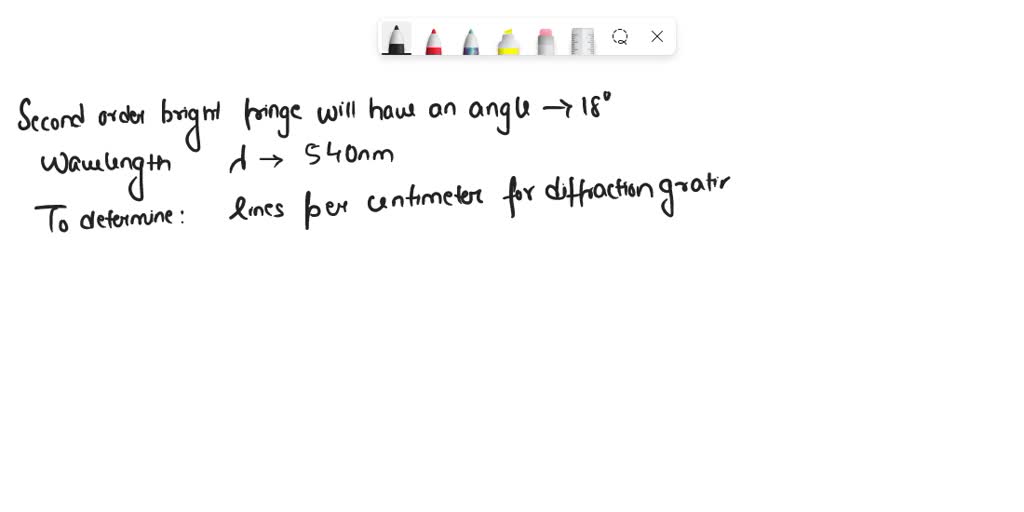 Second order bright fringe will have an angle → 18°
Wavelength λ → 540nm
To determine: lines per centimeter for diffraction gratin